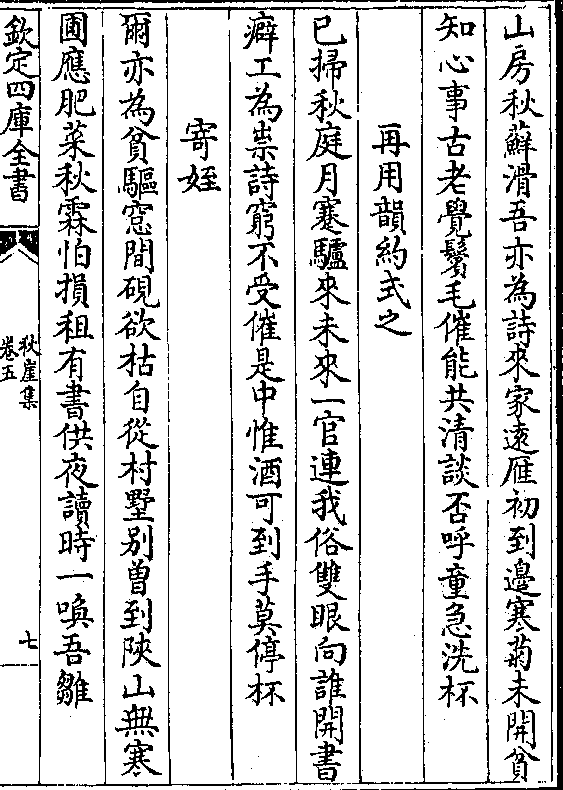 山房秋蘚滑吾亦為詩來家遠雁初到邊寒菊未開貧
知心事古老覺鬢毛催能共清談否呼童急洗杯
再用韻約式之
已掃秋庭月蹇驢來未來一官連我俗雙眼向誰開書
癖工為祟詩窮不受催是中惟酒可到手莫停杯
寄姪
爾亦為貧驅窓間硯欲枯自從村墅别曽到陜山無寒
圃應肥菜秋霖怕損租有書供夜讀時一喚吾雛
欽定四庫全書
秋崖集
卷五
七